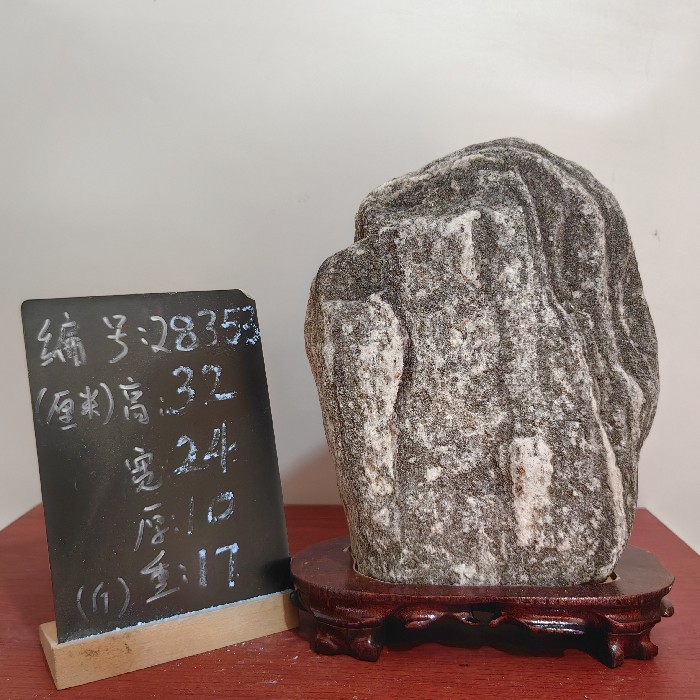 编号:28353
(厘米)高:32
宽:24
厚:10
(斤)重:17